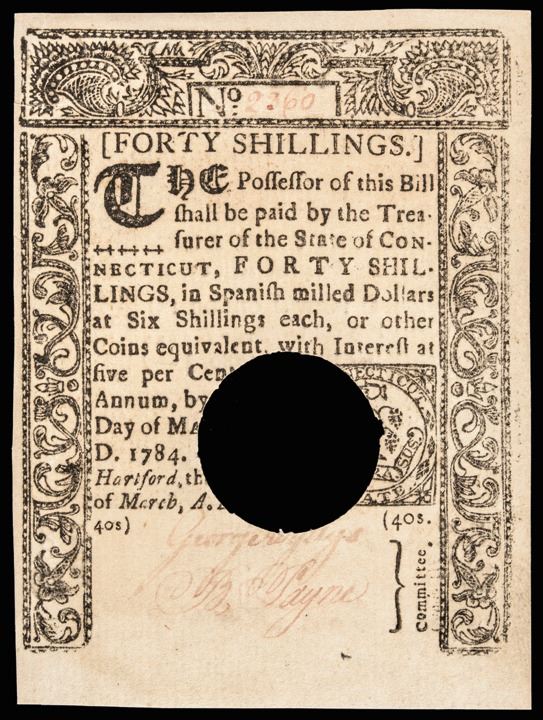 No. 2360
[FORTY SHILLINGS.]
THE Poſſeſſor of this Bill
ſhall be paid by the Trea-
ſurer of the State of CON-
NECTICUT, FORTY SHIL-
LINGS, in Spaniſh milled Dollars
at Six Shillings each, or other
Coins equivalent, with Intereſt at
five per Cent
Annum, by
Day of MA
D. 1784.
NECTICUT
SUS
ATE
Hartford, th
of March, A.
40s) (40s.
B. Payne
Committee.